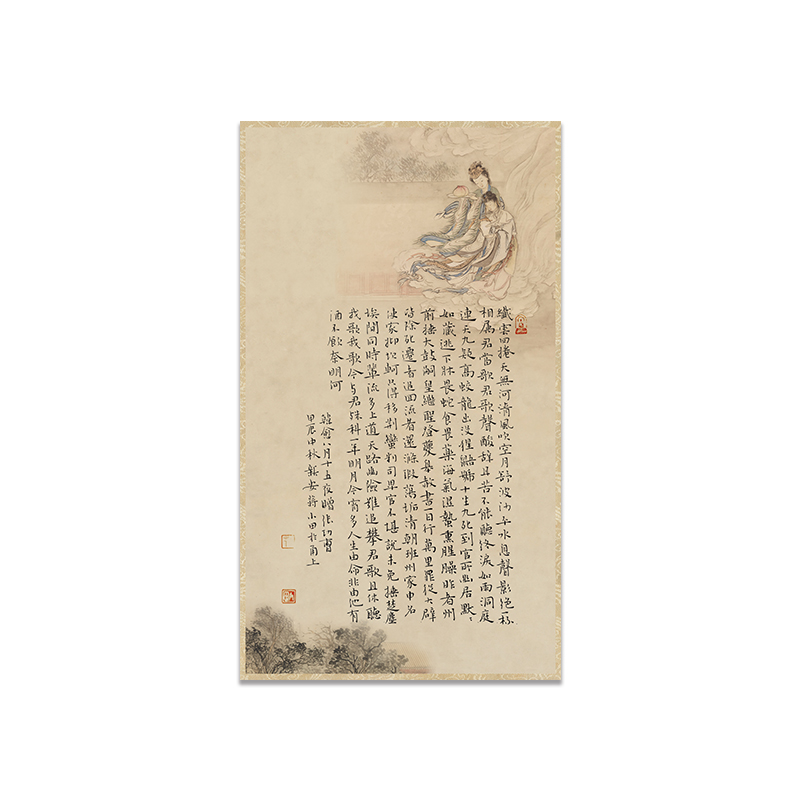 纖雲四捲天無河清風吹空月舒波沙平水息聲影絕一杯
相屬君當歌君歌聲酸辭且苦不能聽終淚如雨洞庭
連天九疑高蛟龍出沒猩鼯號十生九死到官所幽居默〻
如藏逃下牀畏蛇食畏藥海氣濕蟄熏腥臊昨者州
前捶大鼓嗣皇繼聖登夔皋赦書一日行萬里罪從大辟
皆除死遷者追回流者還滌瑕蕩垢清朝班州家申名
使家抑坎軻只得移荊蠻判司卑官不堪說未免捶楚塵
埃間同時輩流多上道天路幽險難追攀君歌且休聽
我歌我歌今与君殊科一年明月今宵多人生由命非由他有
酒不飲奈明何
韓愈八月十五夜贈張功曹
甲辰中秋蔣小田於甬上